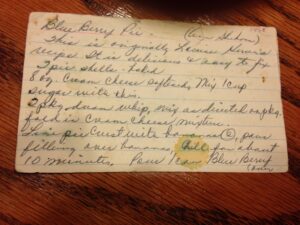 Blue Berry Pie
This is originally Louise
recipe It is delicious & easy to fix
2 pie shells baked
8 oz. Cream cheese softened, Mix 1 cup
sugar with this.
2 pkg dream whip, mix as directed on pkg.
fold in cream cheese mixture.
Line pie crust with bananas ②, pour
filling over bananas, Chill for about
10 minutes. Pour 1 can Blue Berry
over